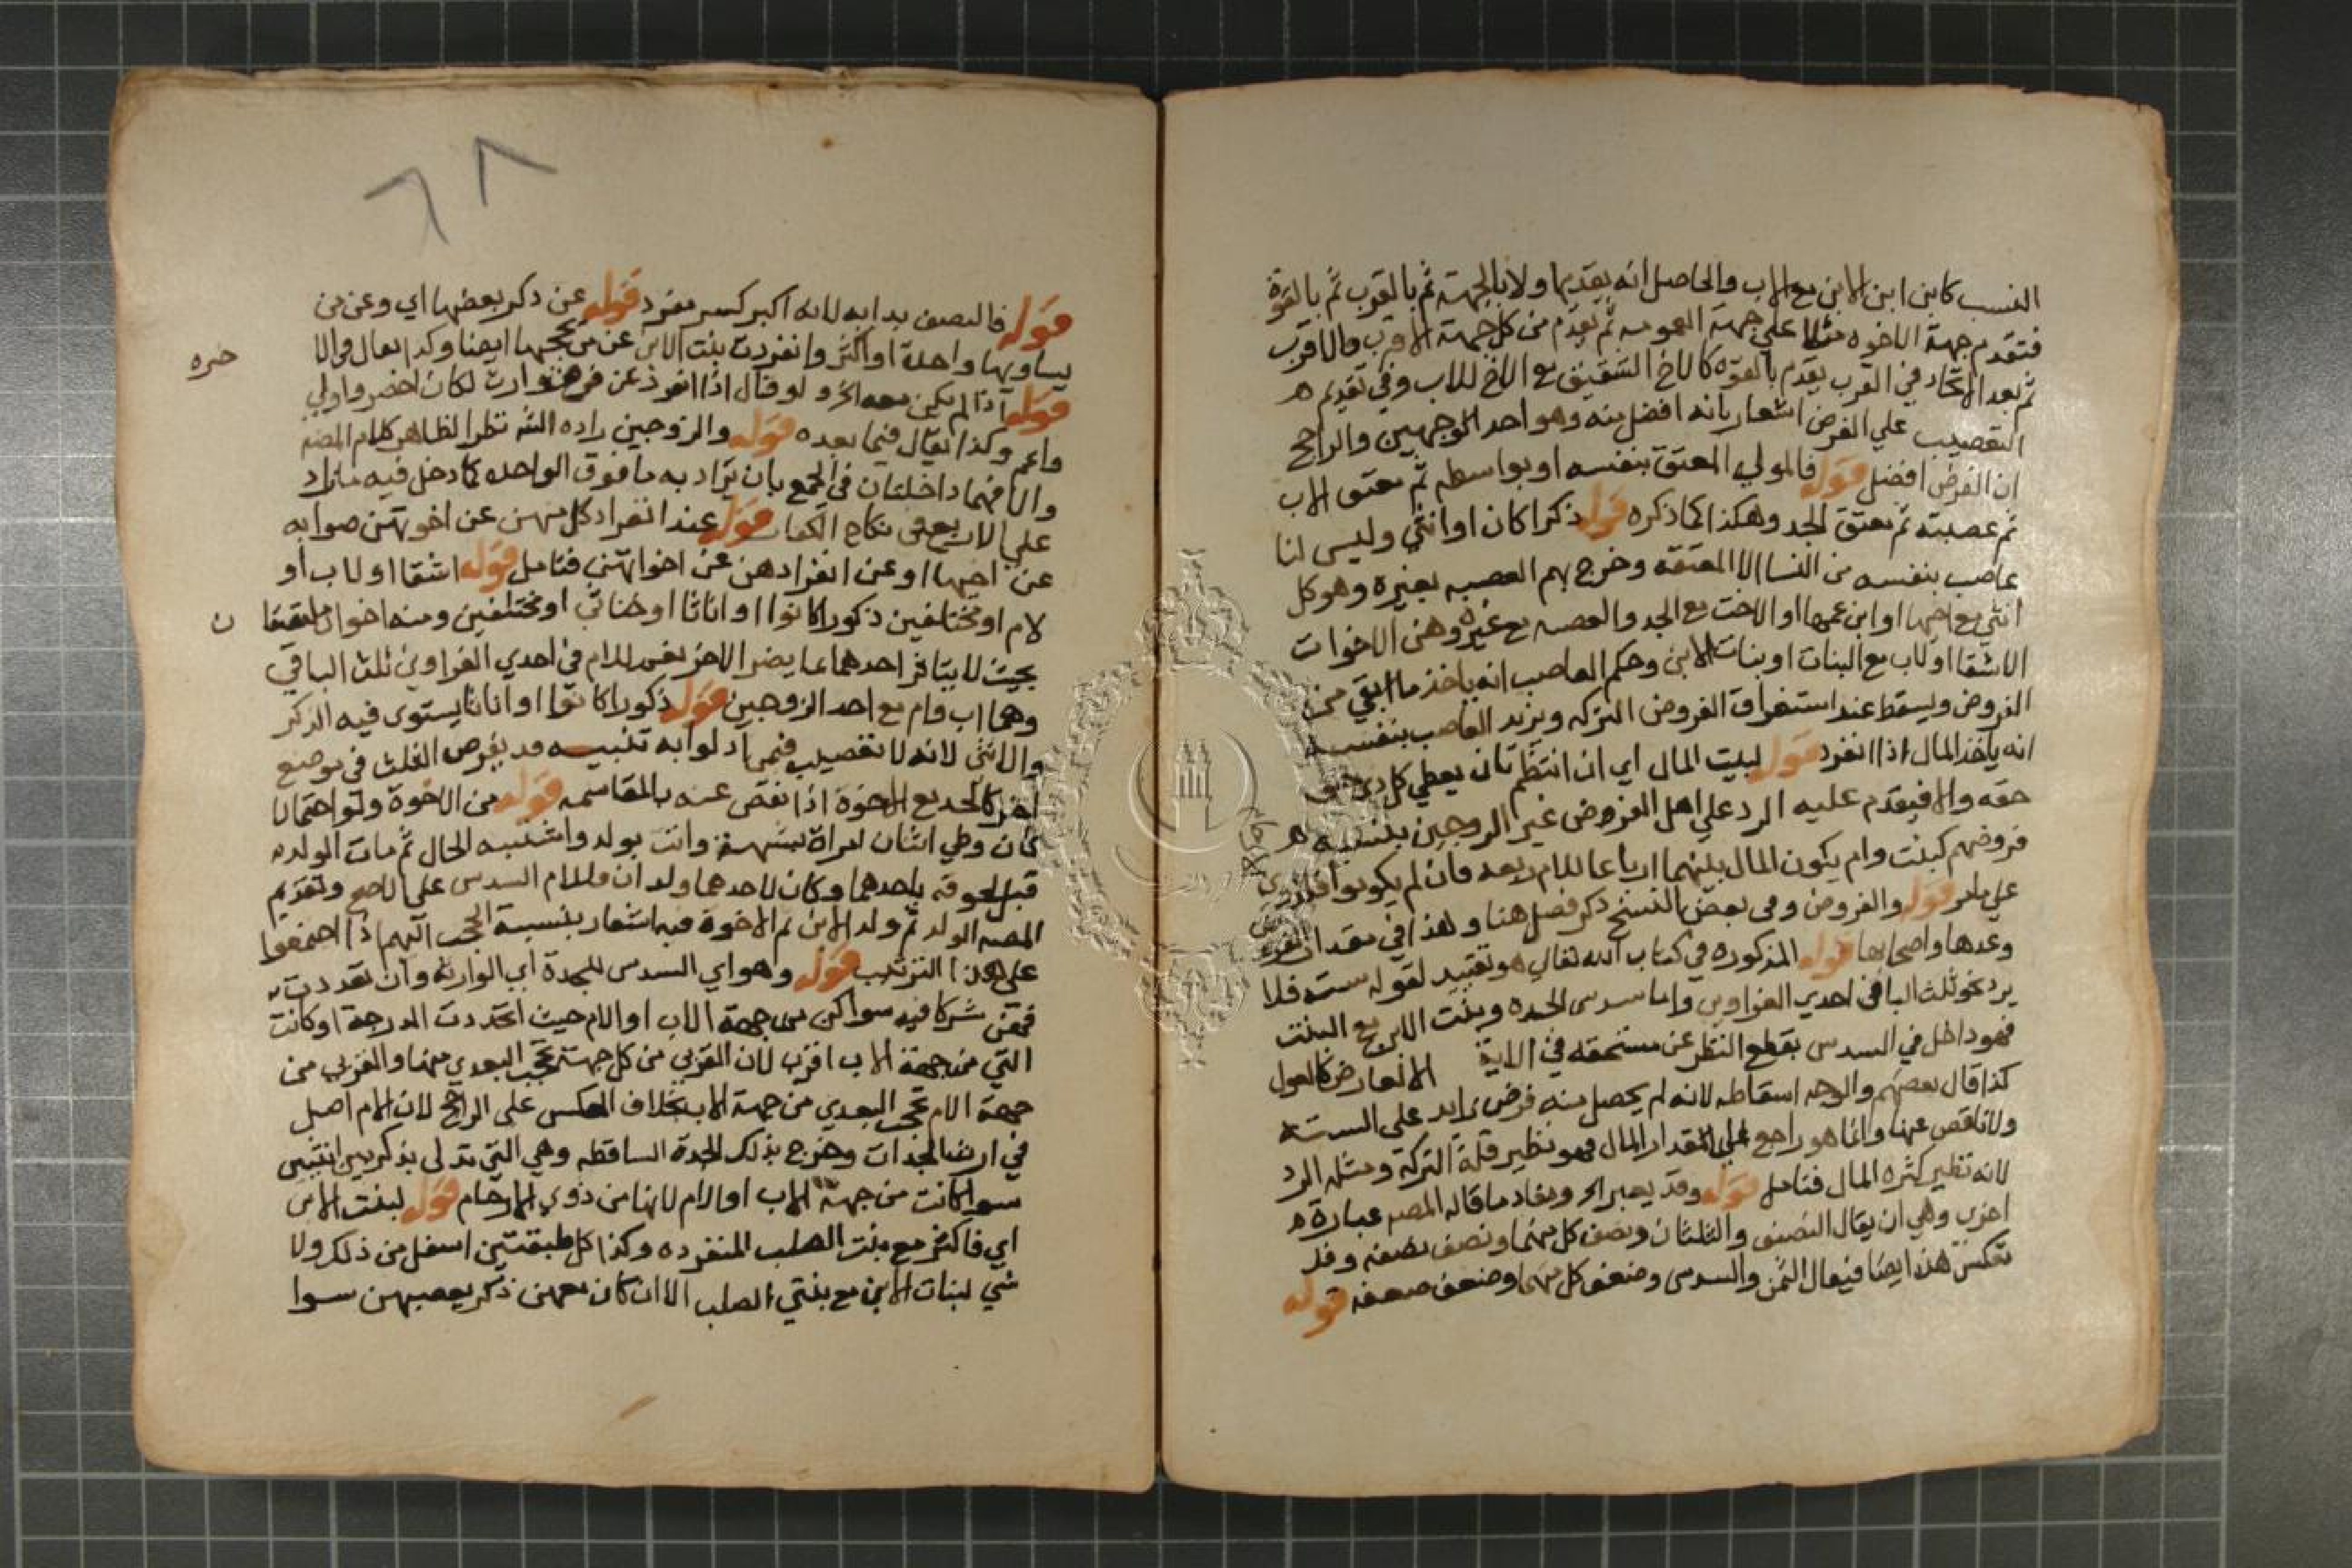 النسب كابن ابن الابن مع الاب والحاصل انه يقدم اولا بالجهة ثم بالقرب ثم بالقوة
فتقدم جهة الاخوه مثلا علي جهة العمومه ثم يقدم من كل جهة الاقرب فالاقرب
ثم بعد الاتحاد في القرب يقدم بالقوه كالاخ الشقيق مع الاخ للاب وفي تقديم ه
التعصيب علي الفرض اشعار بانه افضل منه وهو احد الوجهين والراجح
ان الفرض افضل قوله فالمولي المعتق بنفسه او بواسطه ثم معتق الاب
ثم عصبته ثم معتق الجد وهكذا كما ذكره قوله ذكرا كان او انثي وليس لنا
عاصب بنفسه من النسا الا المعتقه وخرج بهم العصبه بغيره وهو كل
انثي مع اخيها او ابن عمها او الاخت مع الجد والعصبه مع غيره وهن الاخوات
الاشقا او لاب مع البنات او بنات الابن وحكم العاصب انه ياخذ ما ابقي من
الفروض ويسقط عند استغراق الفروض التركه ويزيد العاصب بنفسه
انه ياخذ المال اذا انفرد قوله لبيت المال اي ان انتظم بان يعطي كل ذي حق
حقه والا فيقدم عليه الرد علي اهل الفروض غير الزوجين بنسبه ه
فروضهم كبنت وام يكون المال بينهما ارباعا للام ربعه فان لم يكونوا فلذوي
الارحام
علي ما مر قوله والفروض وفي بعض النسخ ذكر فصل هنا ولهذا في مقدار الفروض
وعدها واصحابها قوله المذكوره في كتاب الله تعالي هو تقييد لقوله سته فلا
يرد نحو ثلث الباقي احدي الغراوين واما سدس الجده وبنت الابن مع البنت
فهو داخل في السدس بقطع النظر عن مستحقه في الاية الا لعارض كالعول
كذا قال بعضهم والوجه اسقاطه لانه لم يحصل منه فرض زايد علي السته
ولا ناقص عنها وانما هو راجع الي مقدار المال فهو نظير قلة التركة ومثله الرد
لانه نظير كثره المال فتامل قوله وقد يعبر الخ ومفاد ما قاله المصه عبارة ه
اخري وهي ان يقال النصف والثلثان ونصف كل منهما ونصف نصفه وقد
تعكس هذه ايضا فيقال الثمن والسدس وضعف كل منهما وضعف ضعفه قوله
قوله فالنصف بدا به لانه اكبر كسر مفرد قوله عن ذكر بعضها اي وعن من
يساويها واحدة او اكثر وانفردت بنت الابن عن من يحجبها ايضا وكذا يقال والا
قوله اذا لم يكن معه الخ ولو قال اذا انفرد عن فرع وارث لكان اخصر واولي
واعم وكذا يقال فيما بعده قوله والزوجين زاده الش نظرا لظاهر كلام المصه
والا فهما داخلتان في الجمع بان يراد به ما فوق الواحده كما دخل فيه ما زاد
علي الاربع في نكاح الكفار قوله عند انفراد كل منهن عن اخوتهن صوابه
عن اخيها او عن انفرادهن عن اخواتهن فتامل قوله اشقا او لاب او
لام او مختلفين ذكورا كانوا او اناثا او خناثي او مختلفين ومنه اخوان ملتصقان
بحيث لا يتاثر احدهما بما يضر الاخر يفرض للام في احدي الغراوين ثلث الباقي
وهما اب وام مع احد الزوجين قوله ذكورا كانوا او اناثا يستوي فيه الذكر
والانثي لانه لا تعصيب فيمن ادلوا به تنبيه قد يفرض الثلث في موضع
اخر كالجد مع الاخوة اذا نقص عنه بالمقاسمه قوله من الاخوة ولو احتمالا
كان وطي اثنان امراة بشبهة واتت بولد واشتبه الحال ثم مات الولد
قبل لحوقه باحدهما وكان لاحدهما ولدان فللام السدس علي الاصح وتقديم
المصه الولد ثم ولد الابن ثم الاخوة فيه اشعار بنسبة الحجب اليهم اذا اجتمعوا
علي هذا الترتيب قوله وهو اي السدس للجدة اي الوارثه وان تعددت
فتقن شركا فيه سوا كن من جهة الاب او الام حيث اتحدت الدرجة او كانت
التي من جهة الاب اقرب لان القربي من كل جهة تحجب البعدي منها والقربي من
جهة الام تحجب البعدي من جهة الاب بخلاف العكس علي الراجح لان الام اصل
في ارث الجدات وخرج بذلك الجدة الساقطه وهي التي تدلي بذكر بين انثيين
سوا كانت من جهة الاب او الام لانها من ذوي الارحام قوله لبنت الابن
اي فاكثر مع بنت الصلب المنفرده وكذا كل طبقتين اسفل من ذلك ولا
شي لبنات الابن مع بنتي الصلب الا ان كان معهن ذكر يعصبهن سوا